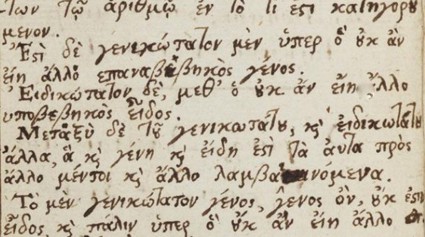 των τῷ ἀριθμῷ ἐν τὸ τί ἐστι κατηγορού
μενον.
Ἔστι δὲ γενικώτατον μὲν ὑπερ ὃ οὐκ ἂν
εἴη ἄλλο επαναβεβηκὸς γένος.
Εἰδικώτατον δὲ, μεθ' ὃ οὐκ ἂν εἴη ἄλλο
υποβεβηκὸς εἶδος.
Μεταξὺ δὲ τοῦ γενικωτάτου, κ̀ εἰδικωτάτου
ἄλλα, ἃ κ̀ γένη κ̀ εἴδη ἐστὶ τὰ αὐτὰ πρὸς
ἄλλο μέντοι κ̀ ἄλλο λαμβανόμενα.
Τὸ μὲν γενικώτατον γένος, γένος ὂν, οὐκ ἔστιν
εἶδος κ̀ πάλιν ὑπερ ὃ οὐκ ἂν εἴη ἄλλο